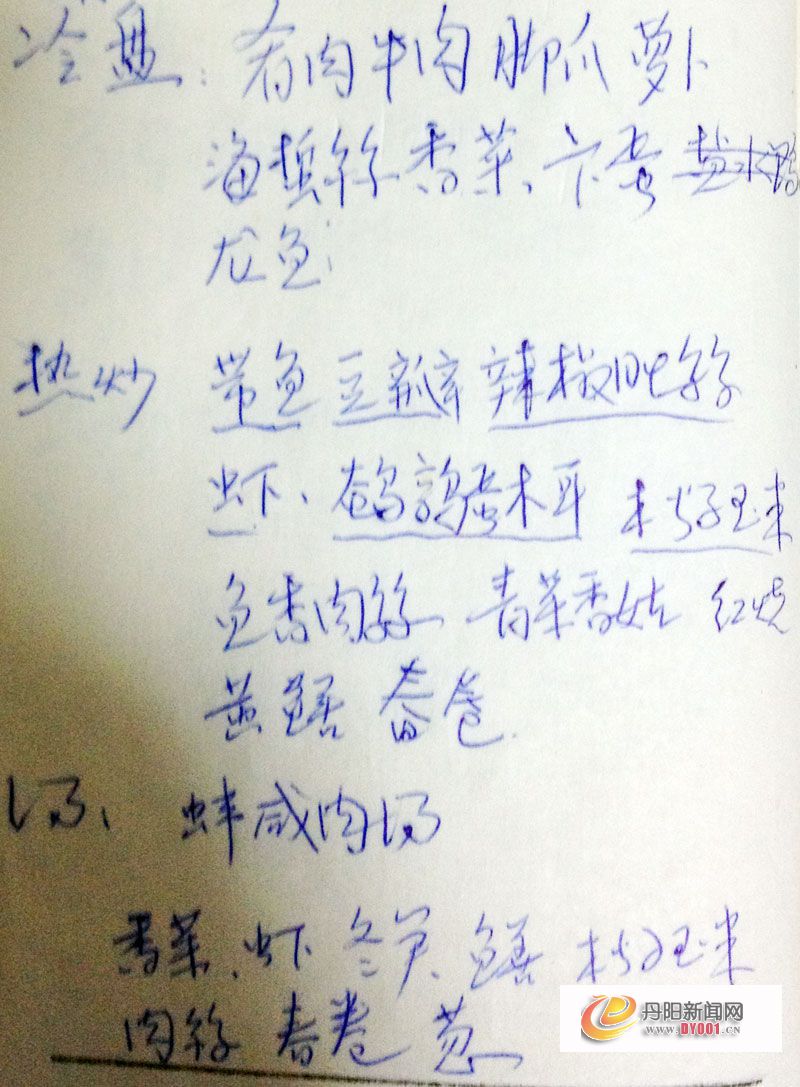 冷盘：肴肉 牛肉 脚爪 萝卜
海蜇丝 香菜、卞蛋 盐水鸭
尤鱼
热炒 带鱼 豆瓣 辣椒肚丝
虾、鹌鹑蛋木耳 松子玉米
鱼香肉丝 青菜香姑 红烧
黄鳝 春卷
汤、蚌咸肉汤
香菜、虾 冬笋、鳝 松子玉米
肉丝 春卷 葱
丹阳新闻网
WWW.DY001.CN